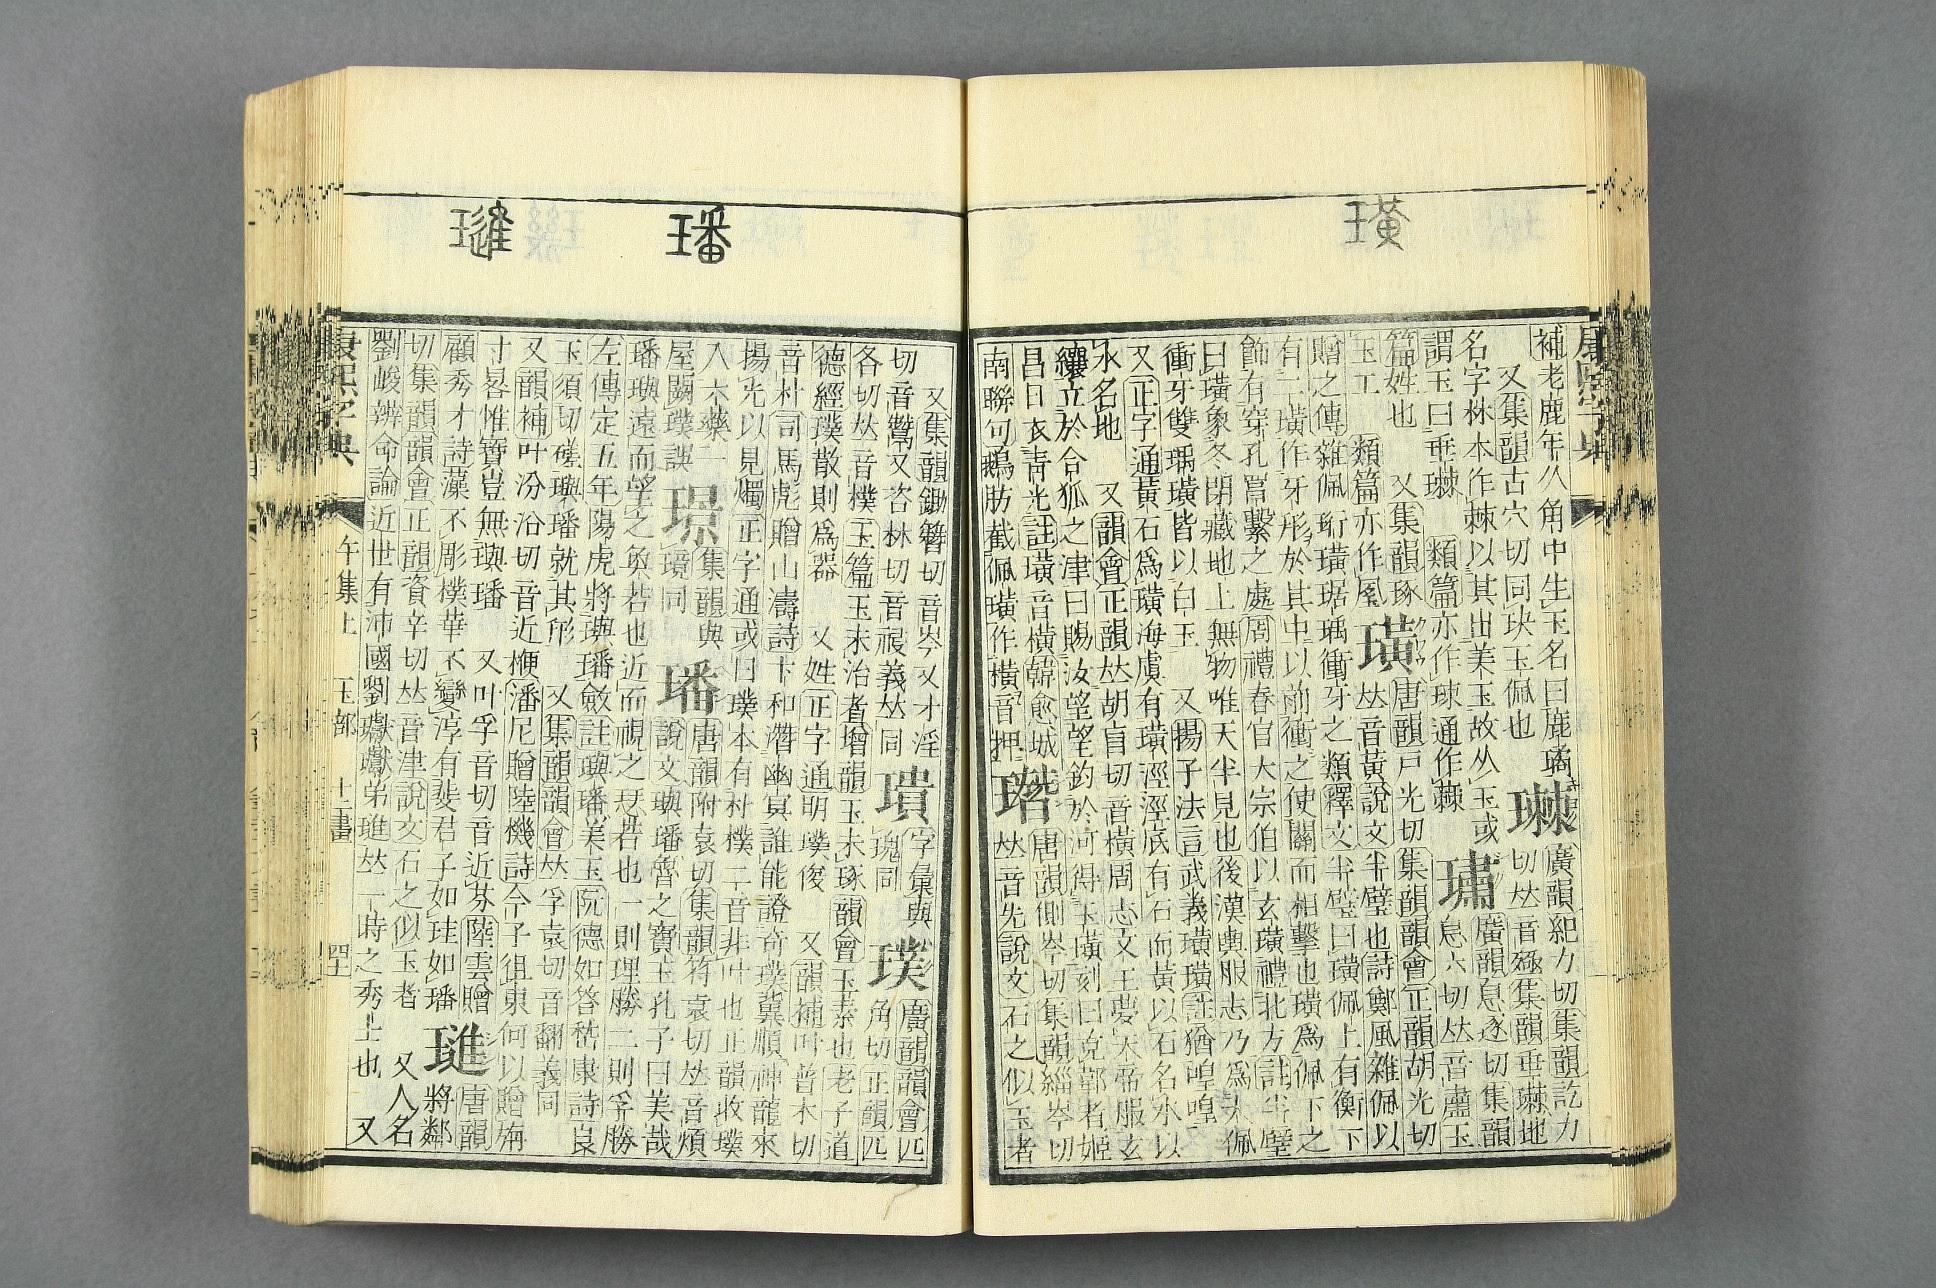 璜
璠
璡
康熙字典
補老鹿年八角中生玉名曰鹿璚 廣韻紀力切集韻訖力
又集韻古穴切同玦玉佩也 切𠀤音殛集韻垂 地
名字林本作棘以其出美玉故从玉或 廣韻息逐切集韻
謂玉曰垂棘 類篇亦作 通作棘 璛 息六切𠀤音肅玉
篇姓也 又集韻琢 唐韻戸光切集韻韻會正韻胡光切
玉工 類篇亦作 璜 𠀤音黃說文半璧也詩鄭風雜佩以
贈之傳雜佩珩璜琚瑀衝牙之類釋文半璧曰璜佩上有衡下
有二璜作牙形於其中以前衝之使關而相擊也璜爲佩下之
飾有穿孔冒繫之處周禮春官大宗伯以玄璜禮北方註半璧
曰璜象冬閉藏地上無物唯天半見也後漢輿服志乃爲大佩
衝牙雙瑀璜皆以白玉 又揚子法言武義璜璜註猶喤喤
又正字通黃石爲璜海虞有璜涇涇底有石而黃以石名水以
水名地 又韻會正韻𠀤胡盲切音橫周志文王夢天帝服玄
纕立於令狐之津曰賜汝望望釣於河得玉璜刻曰兌鄣者姬
昌日衣靑光註璜音橫韓愈城 唐韻側岑切集韻緇岑切
南聯句鵶肪截佩璜作橫音押 𠀤音先說文石之似玉者
又集韻鋤簪切音岑又才淫 字彙與 廣韻韻會匹
切音鬵又咨林切音祲義𠀤同 璝 瑰同 璞 角切正韻匹
各切𠀤音樸玉篇玉未治者增韻玉未琢韻會玉素也老子道
德經璞散則爲器 又姓正字通明璞俊 又韻補叶普木切
音朴司馬彪贈山濤詩卞和潛幽冥誰能證奇璞冀願神龍來
揚光以見燭正字通或曰璞本有朴樸二音非叶也正韻收璞
入木藥一 集韻與 唐韻附袁切集韻符袁切𠀤音煩
屋闕璞誤 璟 璄同 璠 說文璵璠魯之寶玉孔子曰美哉
璠璵遠而望之奐若也近而視之瑟若也一則理勝二則孚勝
左傳定五年陽虎將璵璠斂註璵璠美玉阮德如答嵆康詩良
玉須切磋璵璠就其形 又集韻韻會𠀤孚袁切音翻義同
又韻補叶汾沿切音近楩潘尼贈陸機詩今子徂東何以贈旃
寸晷惟寶豈無璵璠 又叶孚音切音近芬陸雲贈 唐韻
顧秀才詩藻不彫樸華不變淳有斐君子如珪如璠 璡 將鄰
切集韻韻會正韻資辛切𠀤音津說文石之似玉者 又人名
劉峻辨命論近世有沛國劉瓛瓛弟璡𠀤一時之秀士也 又
康熙字典 午集上 玉部 十二畫